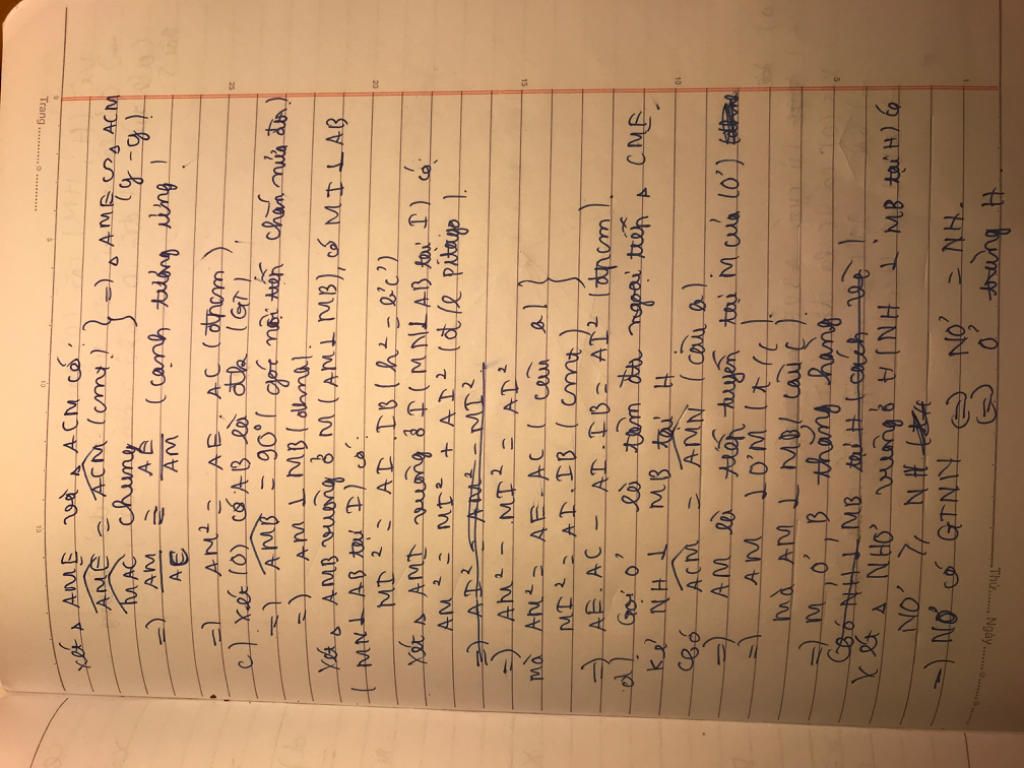 Xét △ AME và △ ACM có:
AME = ACM (cmt) } => △ AME ∽ △ ACM
MAC chung (g-g)
=> AM/AE = AE/AM (cạnh tương ứng)
=> AM² = AE. AC (đpcm)
c) Xét (O) có AB là đk (GT)
=> AMB = 90° (góc nội tiếp chắn nửa đtr)
=> AM ⊥ MB (đhnd)
Xét △ AMB vuông ở M (AM ⊥ MB), có MI ⊥ AB
(MN ⊥ AB tại I) có:
MI² = AI. IB (h² = b'c')
Xét △ AMI vuông ở I (MN ⊥ AB tại I) có
AM² = MI² + AI² (đ/l pitago)
=> AI² = AM² - MI²
=> AM² - MI² = AI²
mà AM² = AE. AC (câu a) }
MI² = AI. IB (cmt)
=> AE. AC - AI. IB = AI² (đpcm)
d) Gọi O' là tâm đtr ngoại tiếp △ CME
kẻ NH ⊥ MB tại H
Có ACM = AMN (câu a)
=> AM là tiếp tuyến tại M của (O')
=> AM ⊥ O'M (t/c)
mà AM ⊥ MB (câu c)
=> M, O', B thẳng hàng
Có NH ⊥ MB tại H (cách vẽ)
Xét △ NHO' vuông ở H (NH ⊥ MB tại H) có
NO' ≥ NH
=> NO' có GTNN <=> NO' = NH.
<=> O' trùng H
Trang
Thứ Ngày
1
5
10
15
20
25